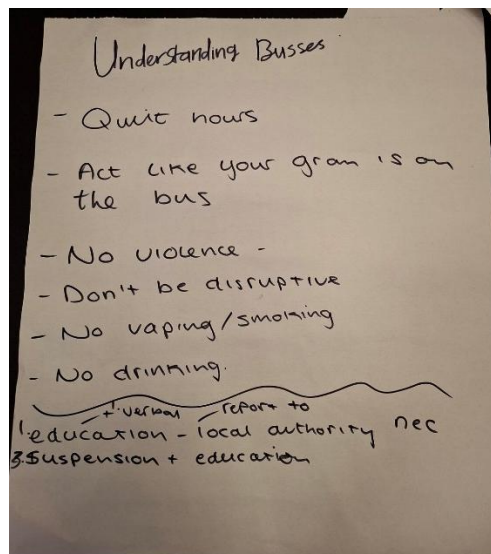 Understanding Busses
- Quuit hours
- Act like your gran is on
the bus
- No violence -
- Don't be disruptive
- No vaping/smoking
- No drinking.
+ verbal report to
1. education - local authority nec
3. Suspension + education